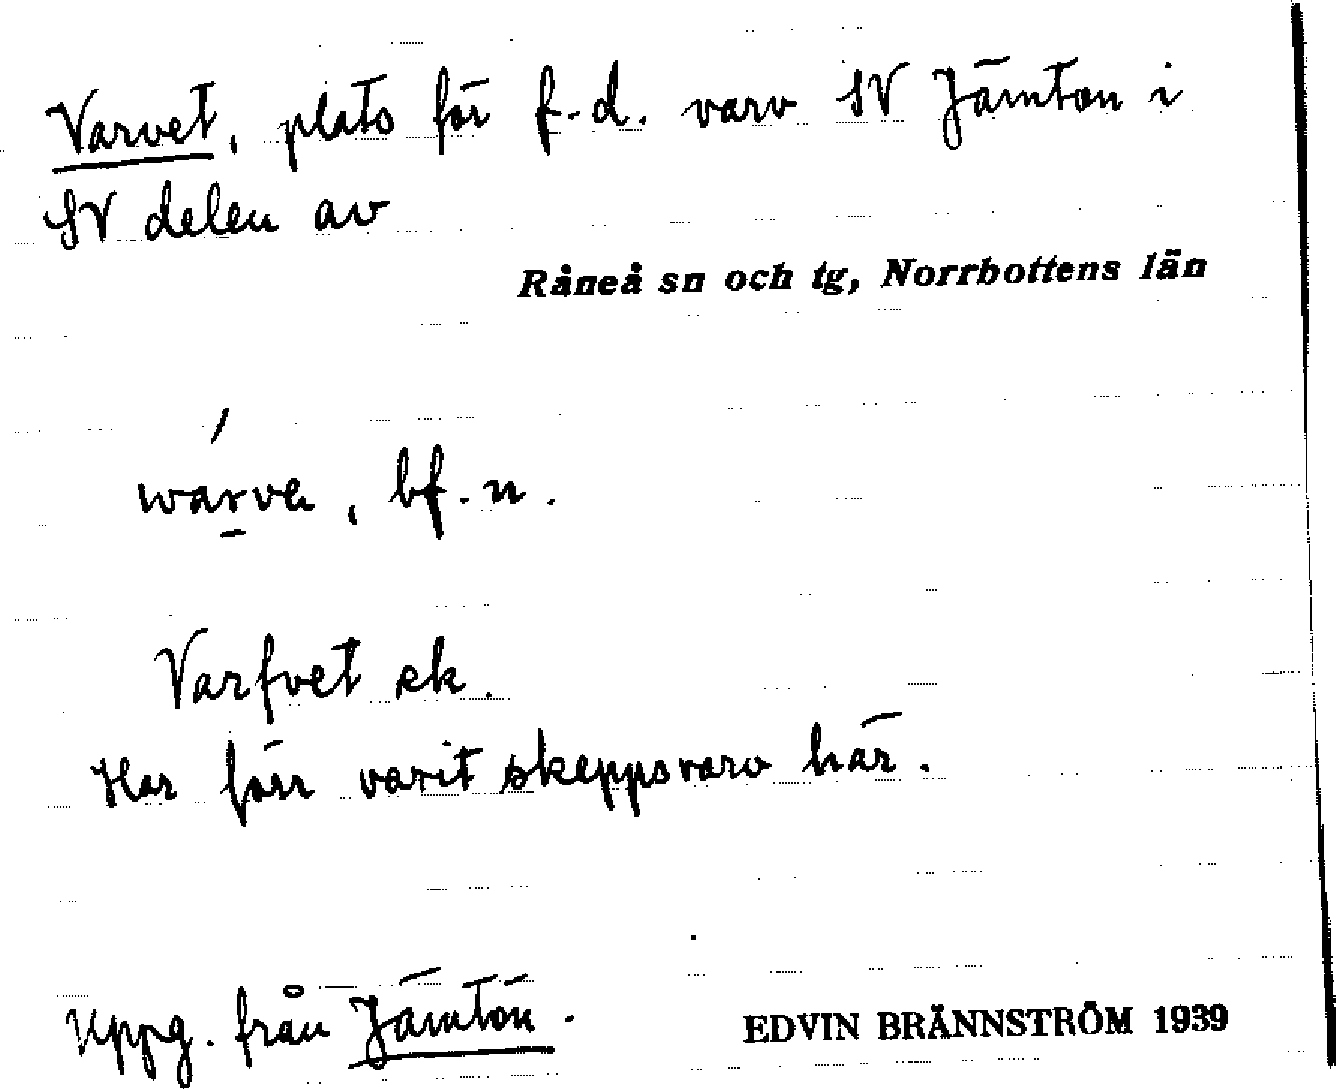 Varvet, plats för f.d. varv SV Jämtön i
SV delen av
Råneå sn och tg, Norrbottens län
bf. n.
Varfvet sk.
Har förr varit skeppsvarv här.
Uppg. från Jämtön.
EDVIN BRÄNNSTRÖM 1939